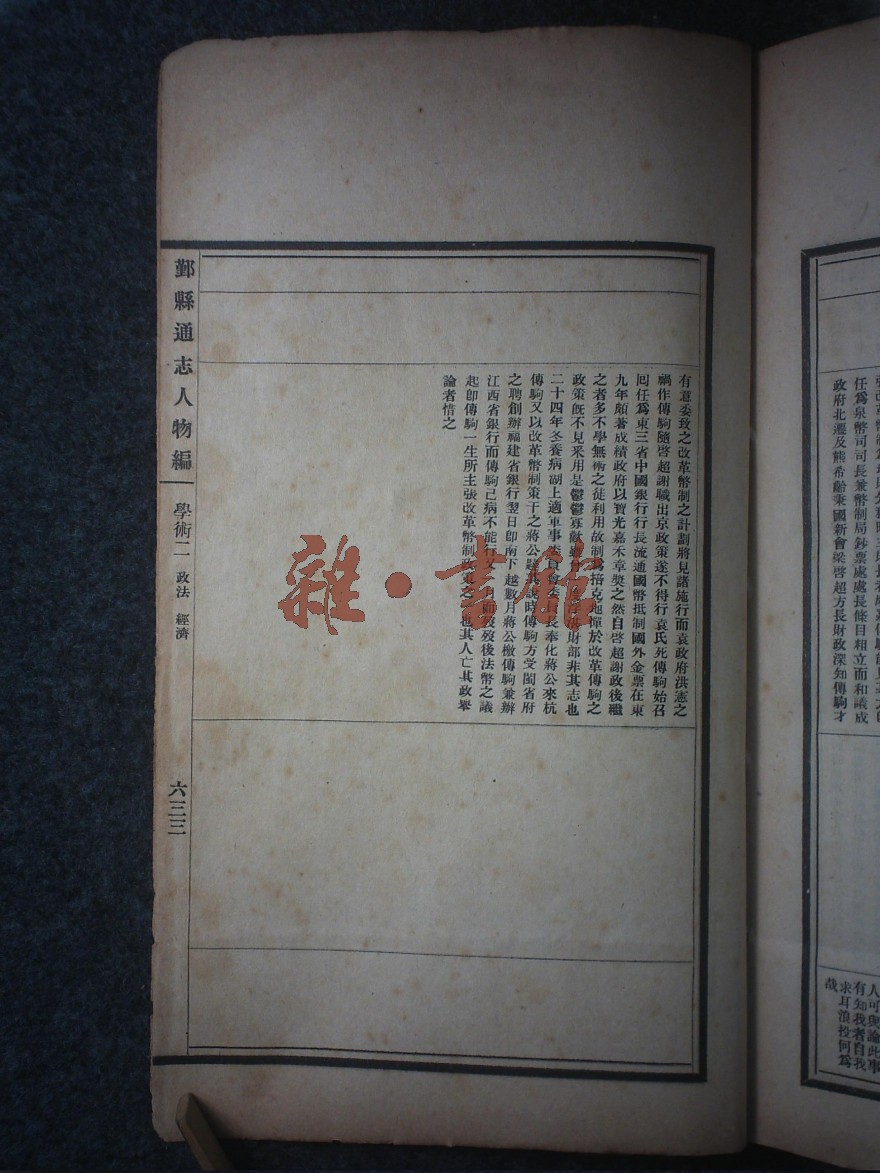 政府北遷及熊希齡秉國新會梁啓超方長財政深知傳駒才
人可與論此事
有知我者自我
求耳浪投何爲
哉
有意委致之改革幣制之計劃將見諸施行而袁政府洪憲之
禍作傳駒隨啓超謝職出京政策遂不得行袁氏死傳駒始召
囘任爲東三省中國銀行行長流通國幣抵制國外金票在東
九年頗著成績政府以寶光嘉禾章奬之然自啓超謝政後繼
之者多不學無術之徒利用故制爲掊克地憚於改革傳駒之
政策旣不見釆用是鬱鬱寡歡 財部非其志也
二十四年冬養病湖上適軍事委員會委員長奉化蔣公來杭
傳駒又以改革幣制策干之蔣公韙其說時傳駒方受閩省府
之聘創辦福建省銀行翌日卽南下越數月蔣公檄傳駒兼辦
江西省銀行而傳駒已病不能行 歿歿後法幣之議
起卽傳駒一生所主張改革幣制政策之 也其人亡其政舉
論者惜之
鄞縣通志人物編
學術二 政法 經濟
六三三
雜·書館